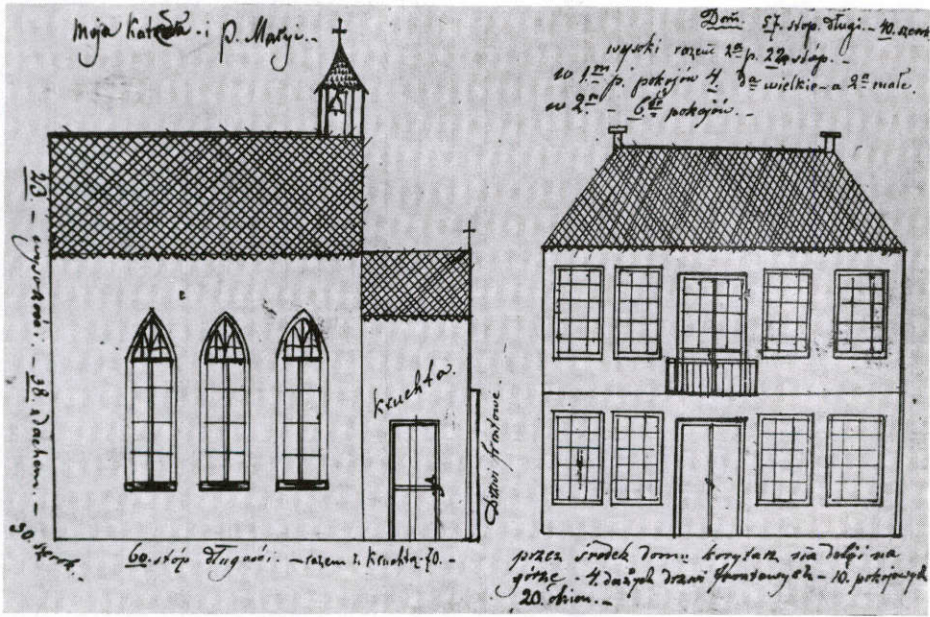 Moja Katedra - i P. Maryi. -
23. - wysokość. - 38. z dachem. -
30. szerok. -
kruchta.
Drzwi frontowe.
60. stóp długości. - razem z kruchtą 70. -
Dom. 57. stop. długi. - 40. szerok.
wysoki razem 2a p. 22a stóp. -
w 1.m p. pokojów 4. 2a wielkie - a 2a małe.
w 2.m - 6. pokojów. -
przez środek domu korytarz na dole i na
górze - 4. drzwi frontowych - 10. pokojowych
20. okien. -